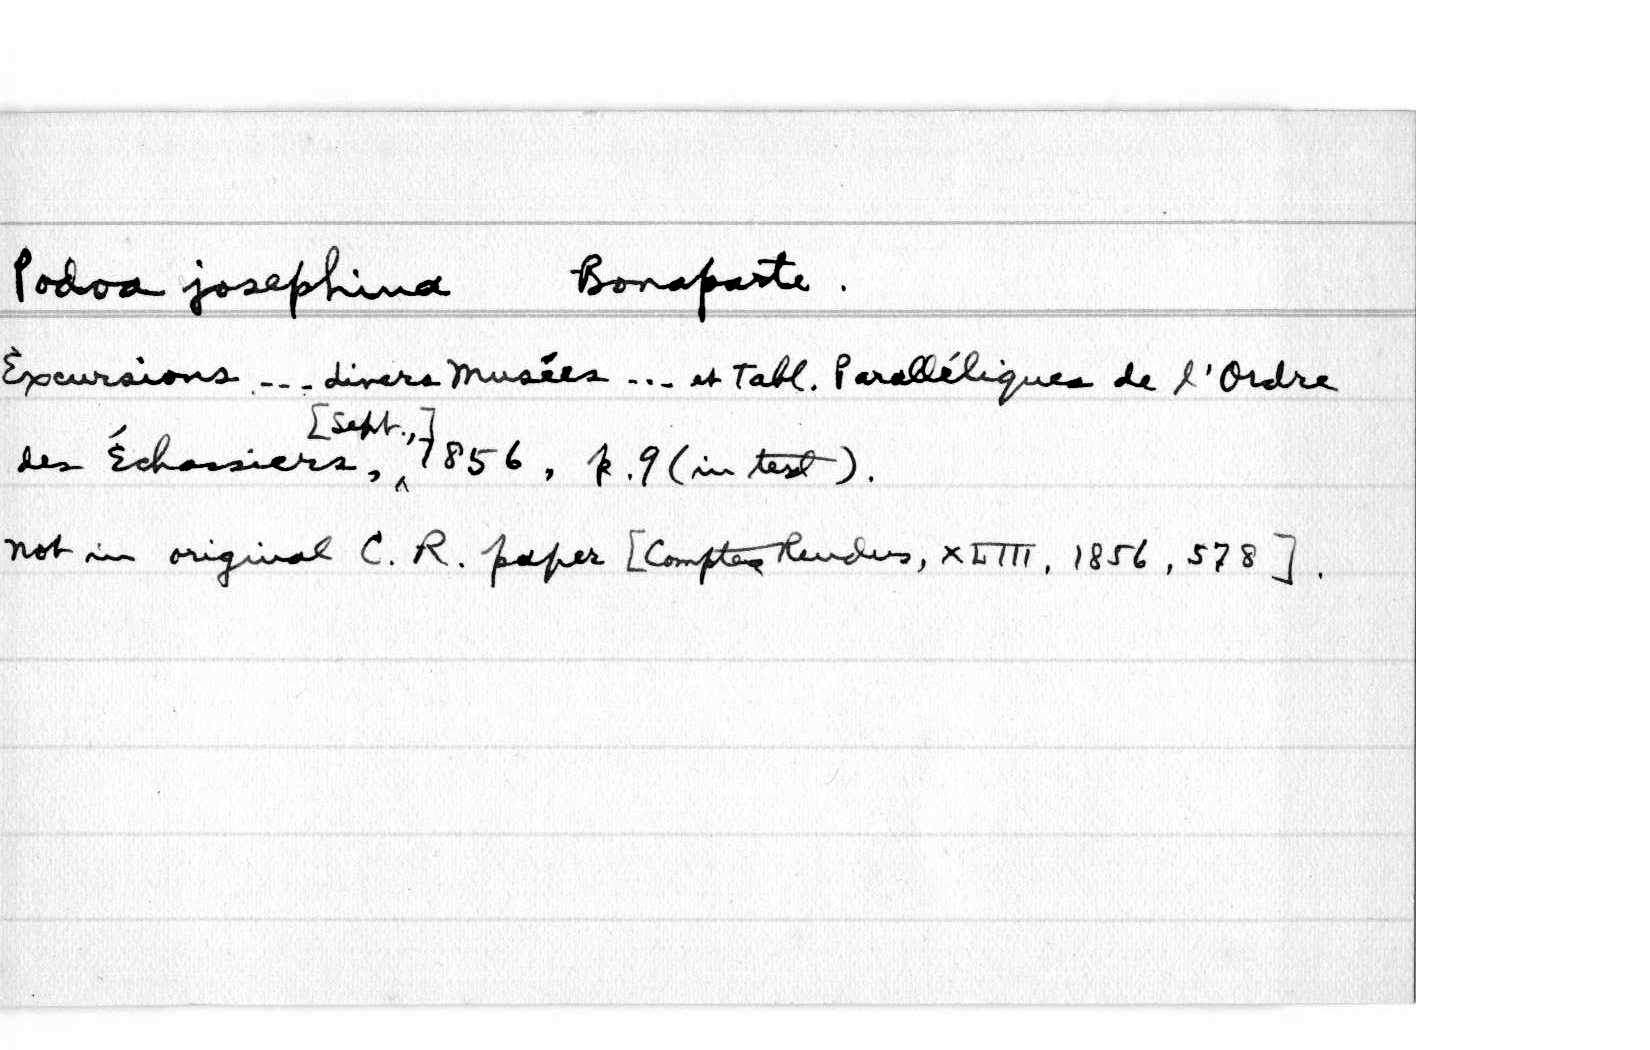 Podoa josephina Bonaparte.
Excursions ... divers Musées ... et Tabl. Paralléliques de l'Ordre
des Échassiers, [Sept.,] 1856, p.9 (in text).
Not in original C. R. paper [Comptes Rendus, XLIII, 1856, 578].